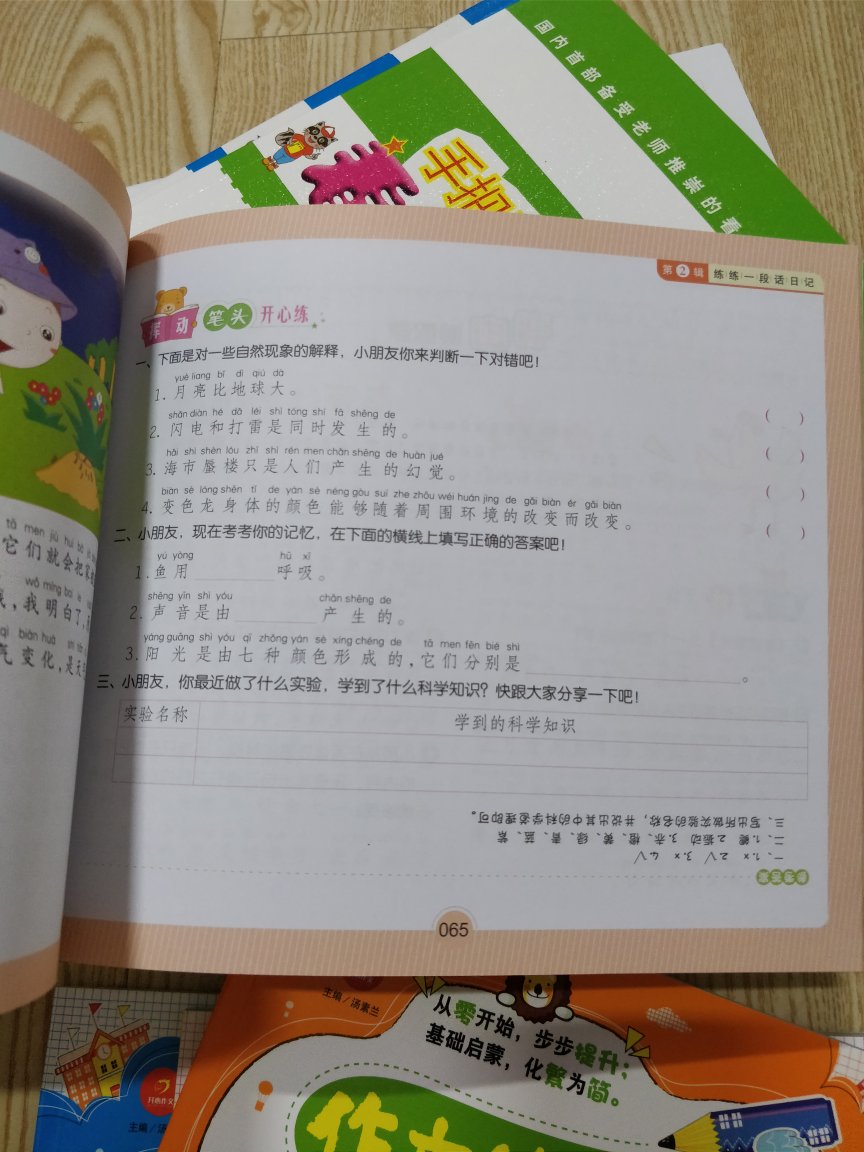 国内首部备受老师推崇的看
手把
第2辑 练练一段话日记
挥动 笔头 开心练
一、下面是对一些自然现象的解释，小朋友你来判断一下对错吧！
yuè liang bǐ dì qiú dà
1. 月亮比地球大。 （ ）
shǎn diàn hé dǎ léi shì tóng shí fā shēng de
2. 闪电和打雷是同时发生的。 （ ）
hǎi shì shèn lóu zhǐ shì rén men chǎn shēng de huàn jué
3. 海市蜃楼只是人们产生的幻觉。 （ ）
biàn sè lóng shēn tǐ de yán sè néng gòu suí zhe zhōu wéi huán jìng de gǎi biàn ér gǎi biàn
4. 变色龙身体的颜色能够随着周围环境的改变而改变。 （ ）
二、小朋友，现在考考你的记忆，在下面的横线上填写正确的答案吧！
yú yòng hū xī
1. 鱼用________呼吸。
shēng yīn shì yóu chǎn shēng de
2. 声音是由________产生的。
yáng guāng shì yóu qī zhǒng yán sè xíng chéng de tā men fēn bié shì
3. 阳光是由七种颜色形成的，它们分别是____________________。
三、小朋友，你最近做了什么实验，学到了什么科学知识？快跟大家分享一下吧！
实验名称 学到的科学知识
一、1.× 2.√ 3.× 4.√
二、1.鳃 2.振动 3.赤、橙、黄、绿、青、蓝、紫
三、写出所做实验的名称，并说出其中的科学道理即可。
065
tā men jiù huì bǎ
它们就会把家
wǒ míng bai le
，我明白了，
qì biàn huà
气变化，是天
主编／汤素兰
从零开始，步步提升；
基础启蒙，化繁为简。
开心作文
主编／汤
作文